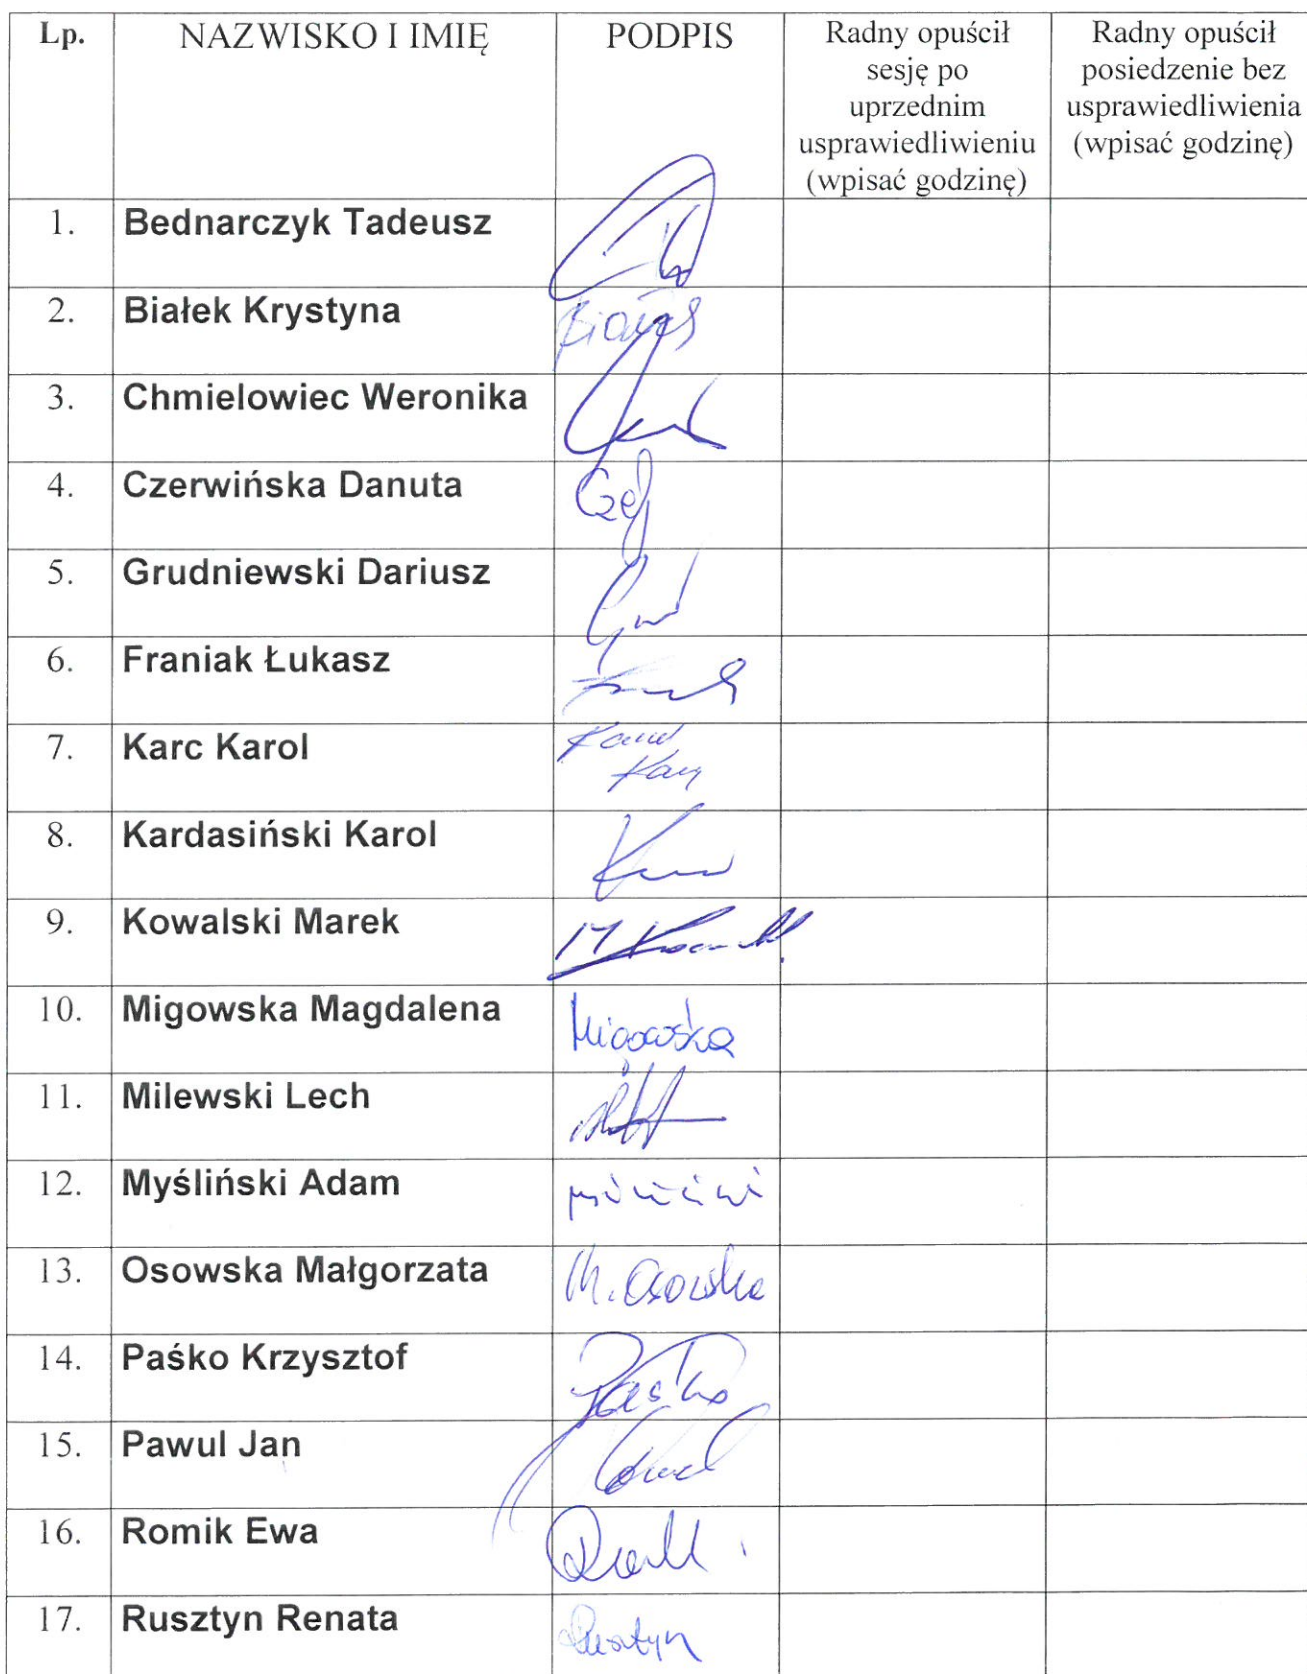 Lp. NAZWISKO I IMIĘ PODPIS Radny opuścił sesję po uprzednim usprawiedliwieniu (wpisać godzinę) Radny opuścił posiedzenie bez usprawiedliwienia (wpisać godzinę)
1. Bednarczyk Tadeusz
2. Białek Krystyna
3. Chmielowiec Weronika
4. Czerwińska Danuta
5. Grudniewski Dariusz
6. Franiak Łukasz
7. Karc Karol
8. Kardasiński Karol
9. Kowalski Marek
10. Migowska Magdalena Migowska
11. Milewski Lech
12. Myśliński Adam
13. Osowska Małgorzata M. Osowska
14. Paśko Krzysztof Paśko
15. Pawul Jan
16. Romik Ewa
17. Rusztyn Renata Rusztyn